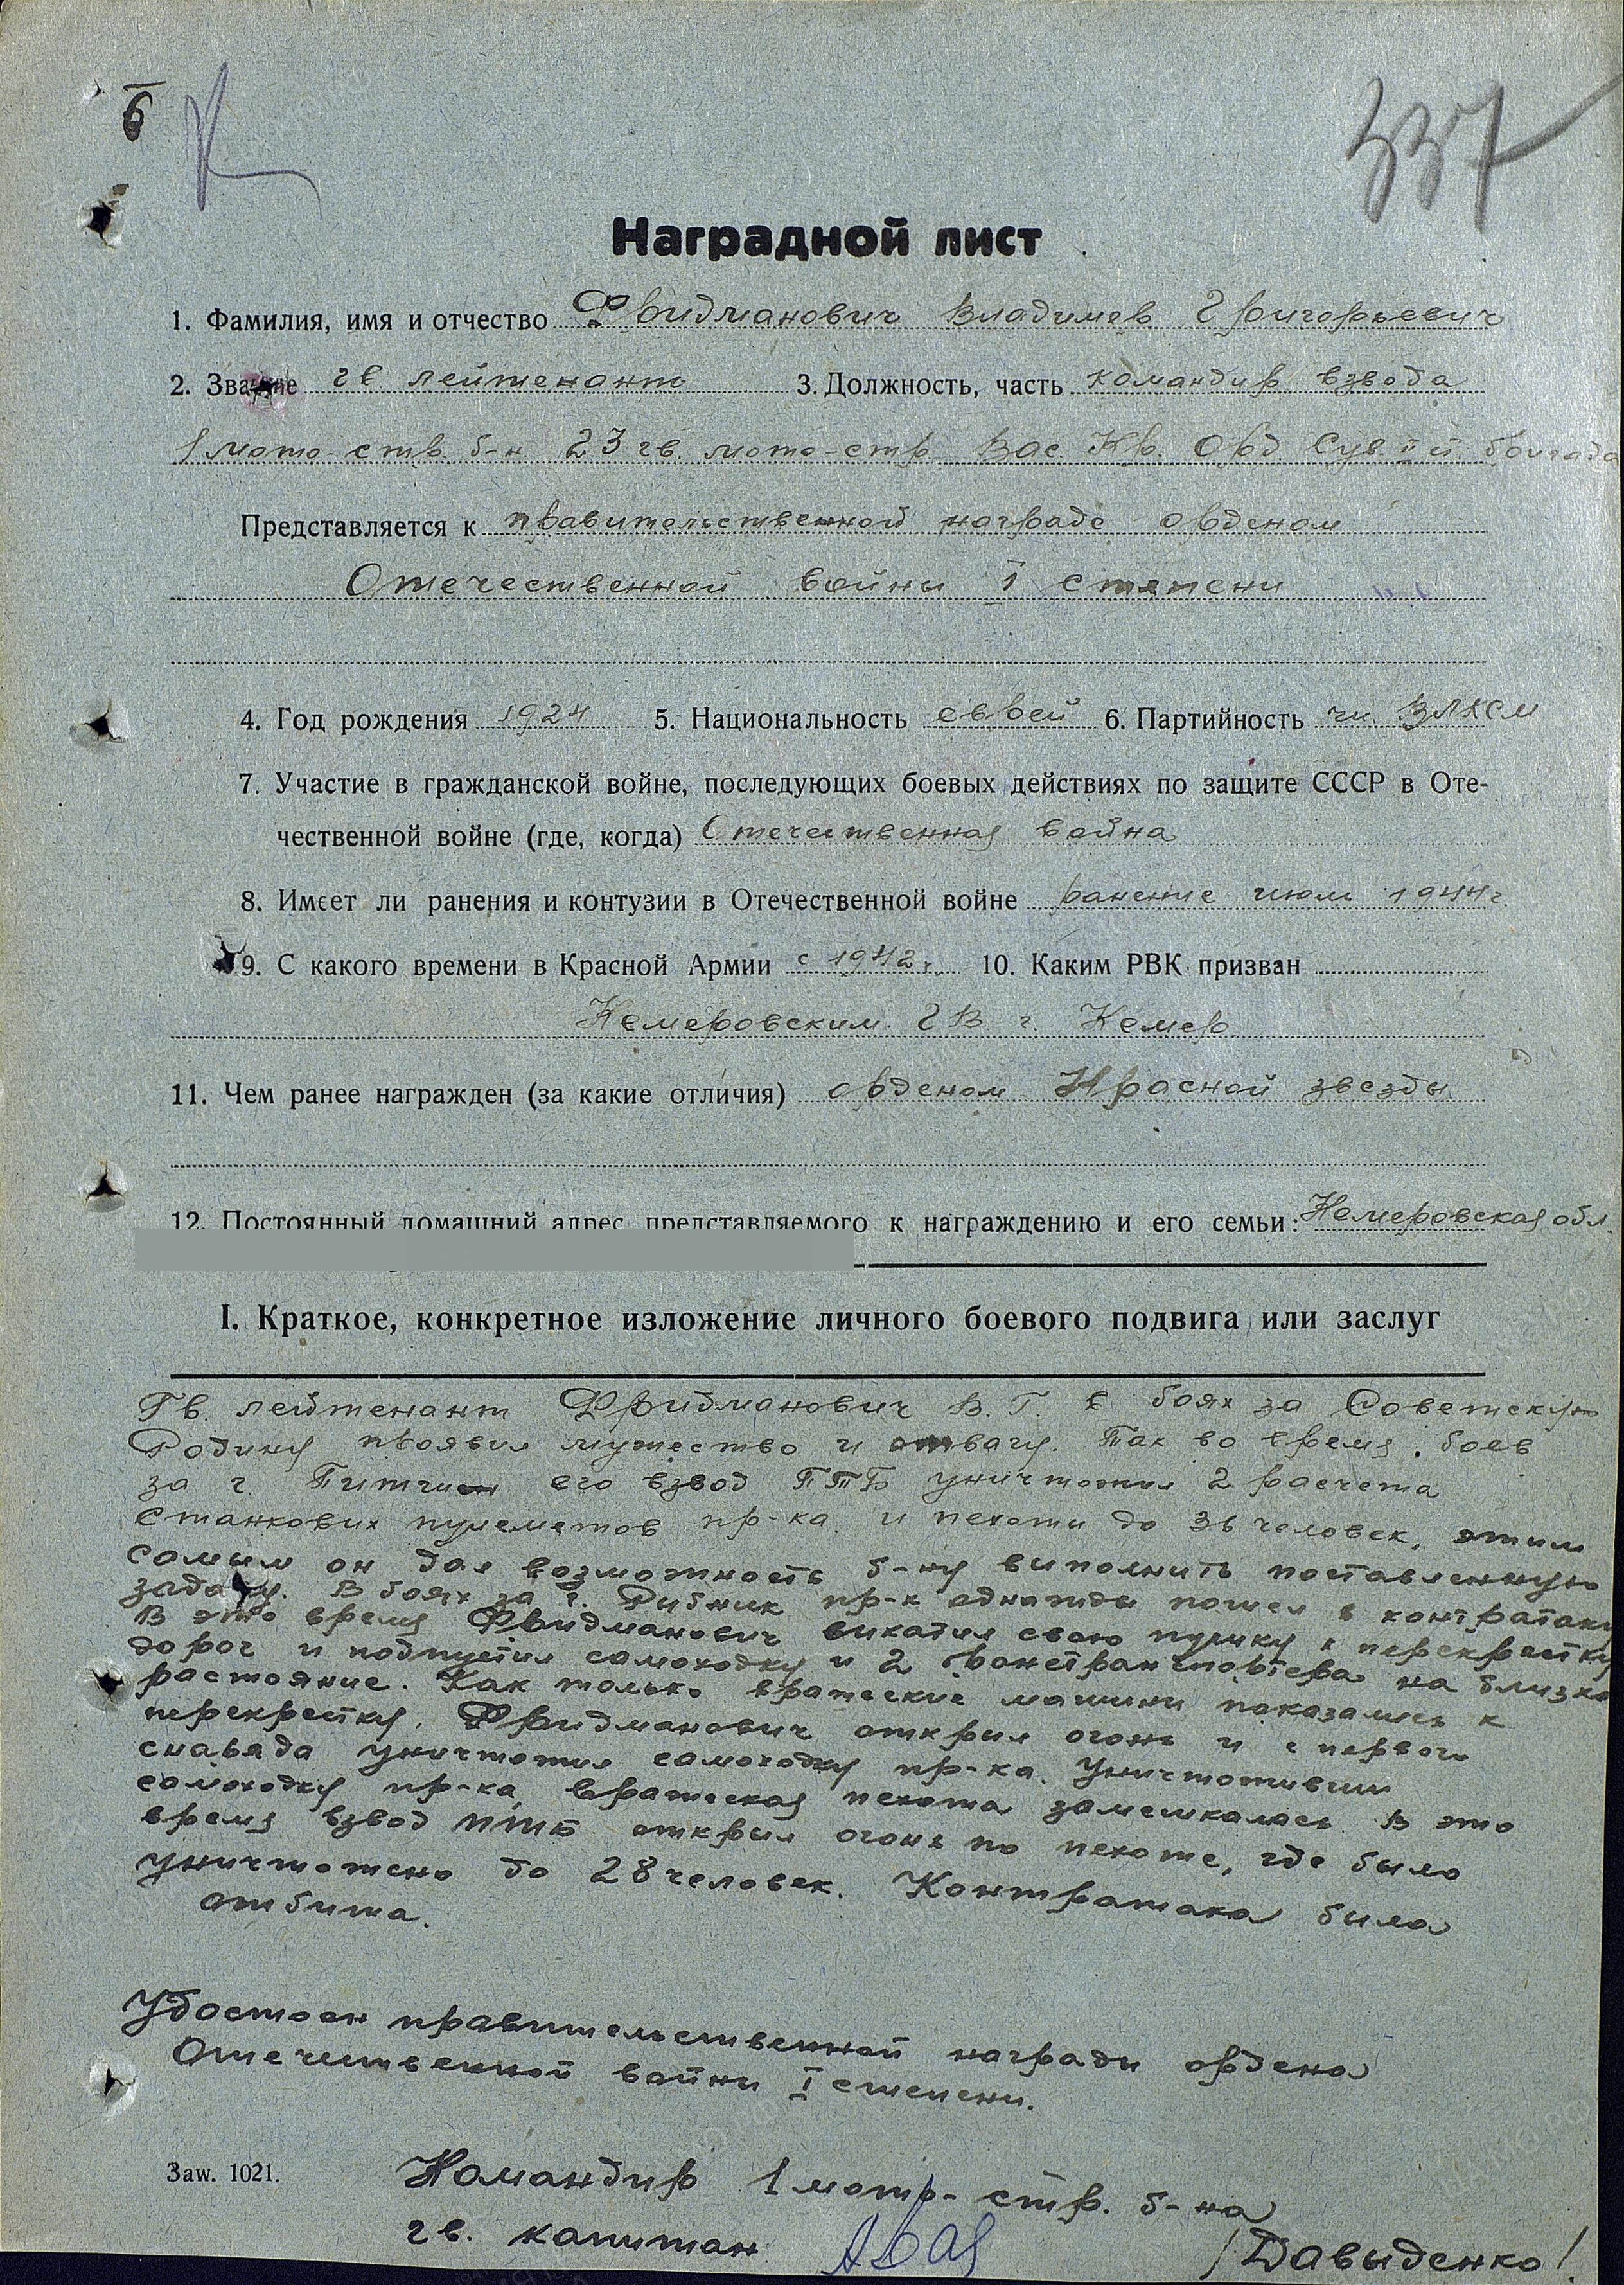 6
337
Наградной лист
1. Фамилия, имя и отчество Фридманович Владимер Григорьевич
2. Звание гв лейтенант 3. Должность, часть командир взвода
1 мото-стр. б-н 23 гв. мото-стр Вас. Кр. Орд Сув. II й бригада
Представляется к правительственной награде орденом
Отечественной войны I степени
4. Год рождения 1924 5. Национальность еврей 6. Партийность чл. ВЛКСМ
7. Участие в гражданской войне, последующих боевых действиях по защите СССР в Оте-
чественной войне (где, когда) Отечественная война
8. Имеет ли ранения и контузии в Отечественной войне ранение июль 1944 г.
9. С какого времени в Красной Армии с 1942 г. 10. Каким РВК призван
Кемеровским ГВ г. Кемер
11. Чем ранее награжден (за какие отличия) орденом Красной звезды
12. Постоянный домашний адрес представляемого к награждению и его семьи: Кемеровская обл.
I. Краткое, конкретное изложение личного боевого подвига или заслуг
Гв. лейтенант Фридманович В. Г. в боях за Советскую
Родину проявил мужество и отвагу. Так во время боев
за г. его взвод ПТБ уничтожил 2 расчета
станковых пулеметов пр-ка и пехоты до 36 человек, этим
самым он дал возможность б-ну выполнить поставленную
задачу. В боях за г. Рибник пр-к однажды пошел в контратаку
В это время Фридманович выкатил свою пушку к перекрестку
дорог и подпустил самоходку и 2 бронетранспортера на близко
растояние. Как только вражеские машины показались к
перекрестку, Фридманович открыл огонь и с первого
снаряда уничтожил самоходку пр-ка. Уничтоживши
самоходку пр-ка, вражеская пехота замешкалась. В это
время взвод ПТБ открыл огонь по пехоте, где было
уничтожено до 28 человек. Контратака была
отбита.
Удостоен правительственной награды ордена
Отечественной войны I степени.
Заw. 1021.
Командир 1 мото-стр. б-на
гв. капитан
/Давыденко/